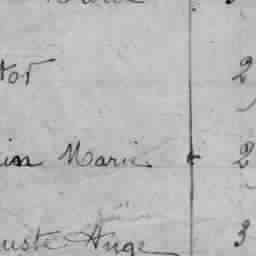 tor 2
in Marie 2
uste Ange 3